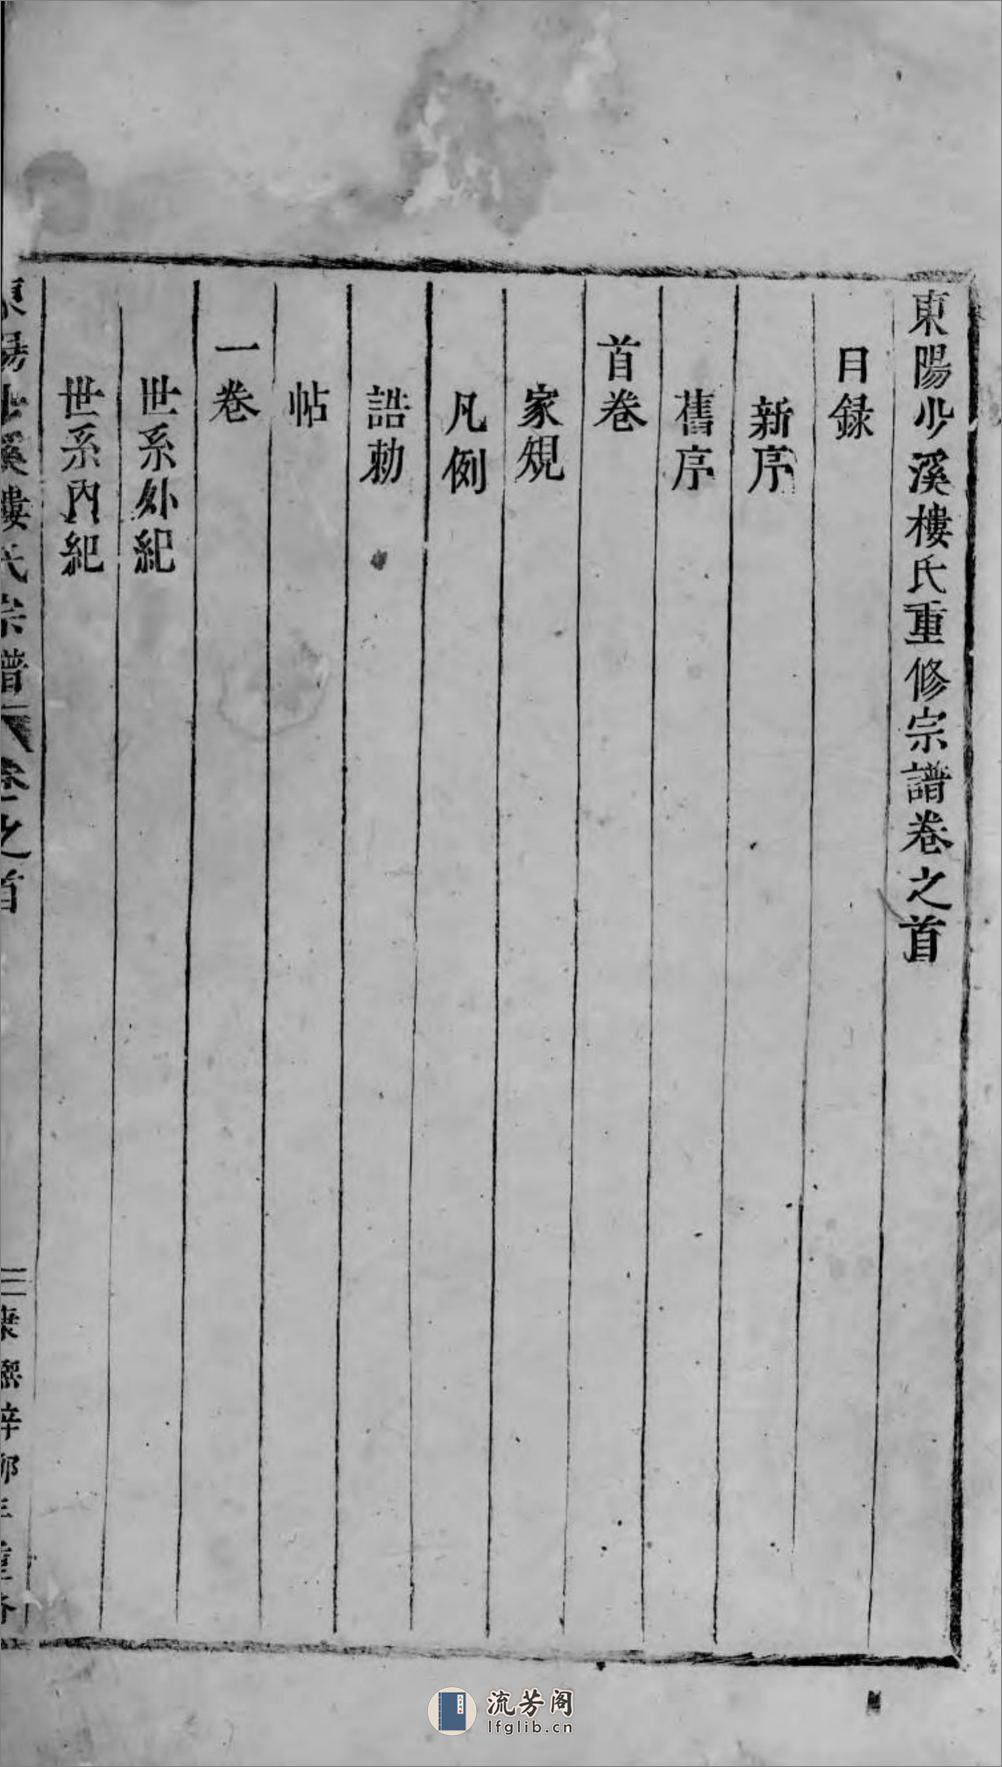 東陽少溪樓氏重修宗譜卷之首
目録
新序
舊序
首卷
家規
凡例
誥勅
帖
一卷
世系外紀
世系內紀
東陽少溪樓氏宗譜 卷之首 三 康熙辛卯年重修
流芳阁
lfglib.cn